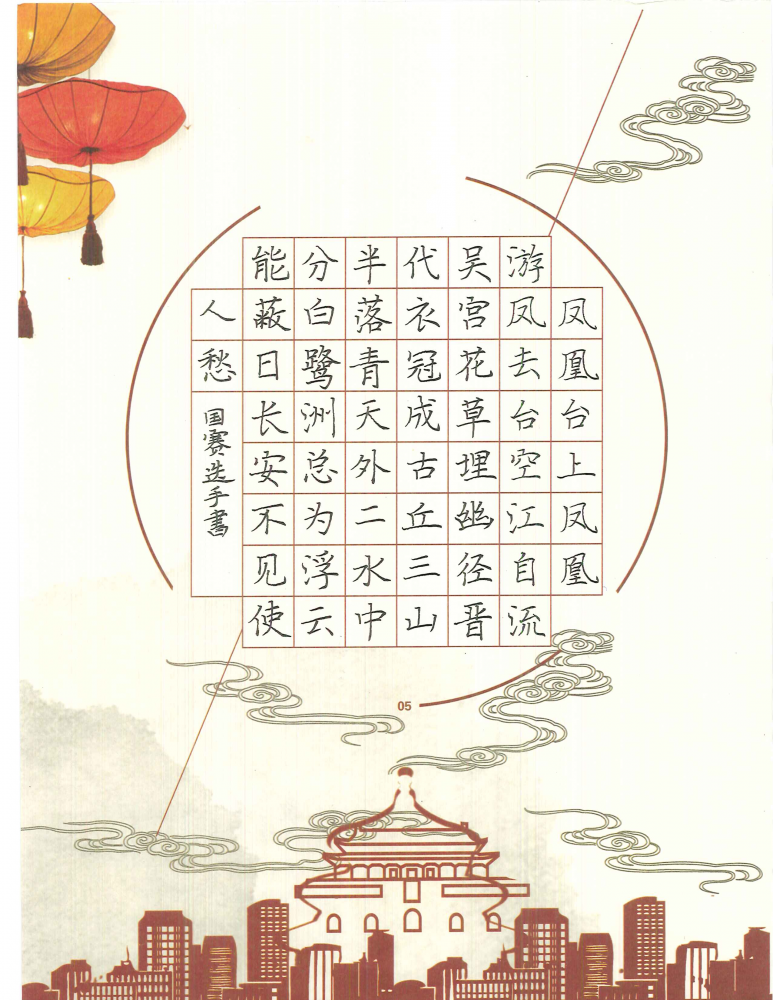 凤凰台上凤凰
游凤去台空江自流
吴宫花草埋幽径晋
代衣冠成古丘三山
半落青天外二水中
分白鹭洲总为浮云
能蔽日长安不见使
人愁
国赛选手书
05